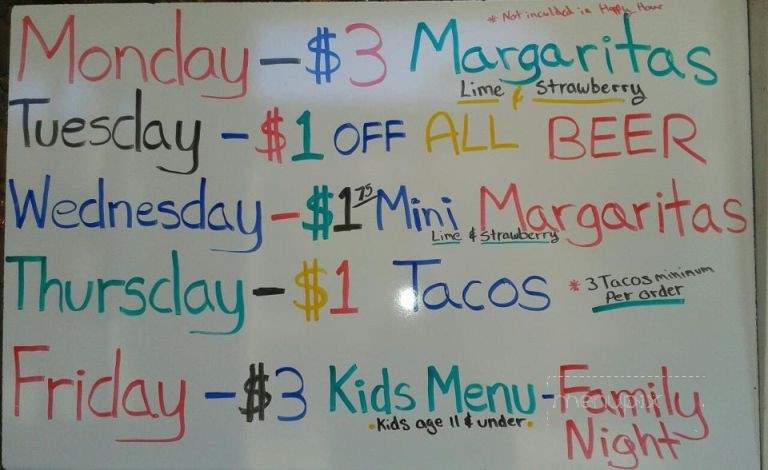 * Not inculded in Happy Hour
Monday - $3 Margaritas
Lime & Strawberry
Tuesday - $1 OFF ALL BEER
Wednesday - $1 75 Mini Margaritas
Lime & Strawberry
Thursday - $1 Tacos * 3 Tacos minimum
Per order
Friday - $3 Kids Menu - Family
Night
• Kids age 11 & under •
menupix